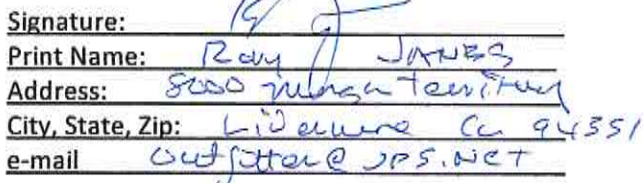 Signature:
Print Name: Ray JANES
Address: 8000 Morgan Territory
City, State, Zip: Livermore Ca 94551
e-mail outfitter@JPS.NET